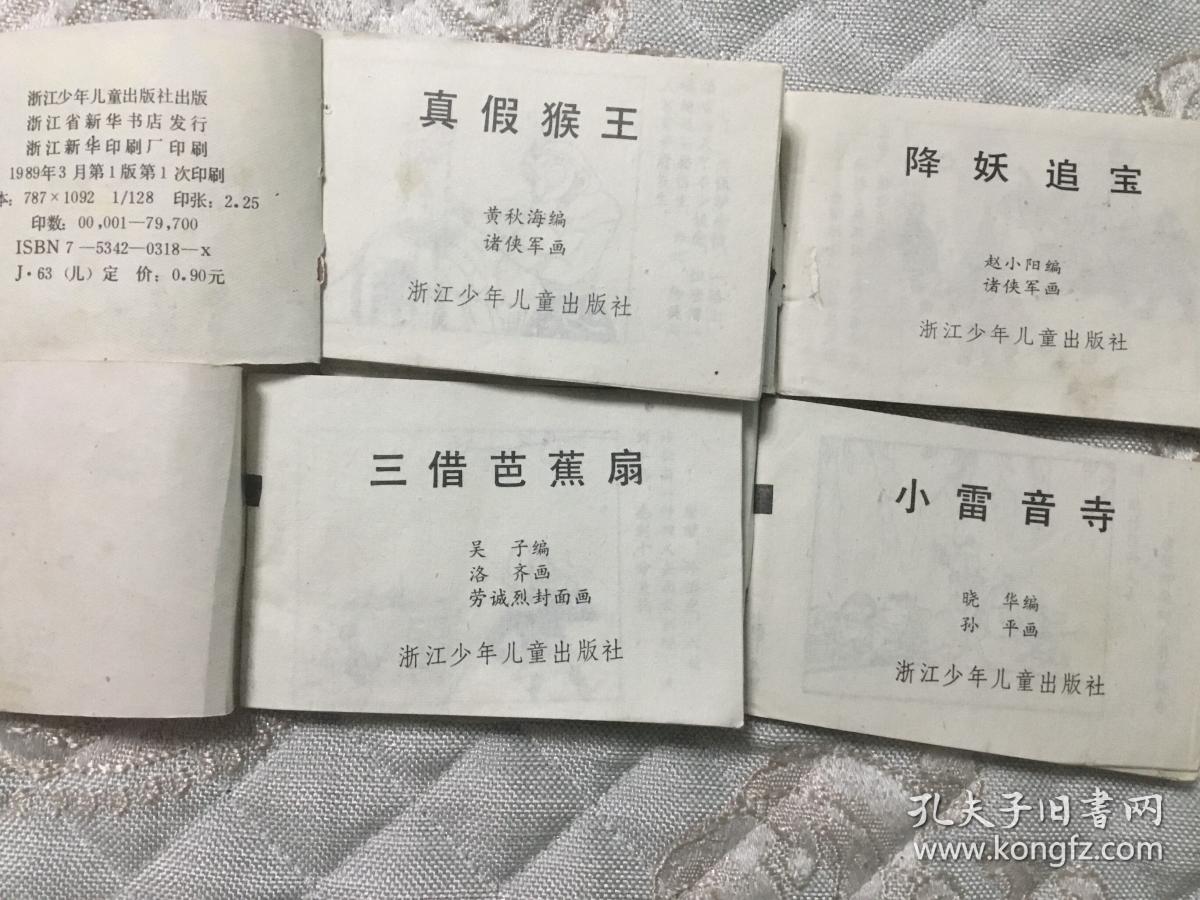 浙江少年儿童出版社出版
浙江省新华书店发行
浙江新华印刷厂印刷
1989年3月第1版第1次印刷
本：787×1092 1/128 印张：2.25
印数：00,001—79,700
ISBN 7—5342—0318—x
J·63（儿）定 价：0.90元
真假猴王
黄秋海编
诸侠军画
浙江少年儿童出版社
降妖追宝
赵小阳编
诸侠军画
浙江少年儿童出版社
三借芭蕉扇
吴 子编
洛 齐画
劳诚烈封面画
浙江少年儿童出版社
小雷音寺
晓 华编
孙 平画
浙江少年儿童出版社
孔夫子旧书网
www.kongfz.com